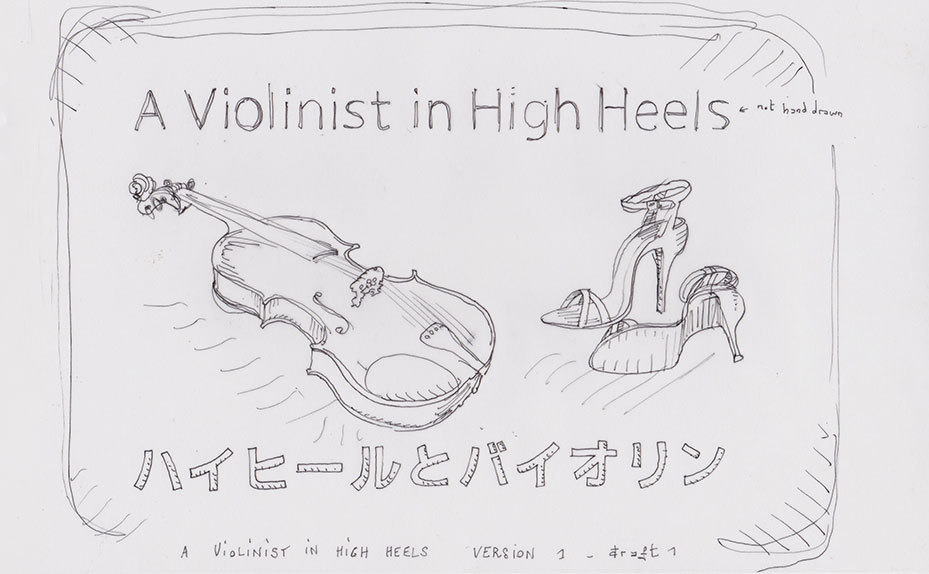 A Violinist in High Heels ← not hand drawn
ハイヒールとバイオリン
A VIOLINIST IN HIGH HEELS VERSION 1 - draft 1